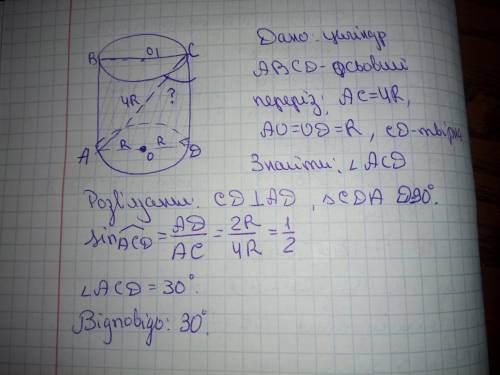 Дано: циліндр
ABCD - осьовий
переріз; AC=4R,
AO=OD=R, CD-твірна
Знайти: ∠ACD
B O1 C
4R ?
A R O R D
Розв'язання. CD⊥AD, △CDA D90°.
sin ACD = AD/AC = 2R/4R = 1/2
∠ACD = 30°.
Відповідь: 30°.